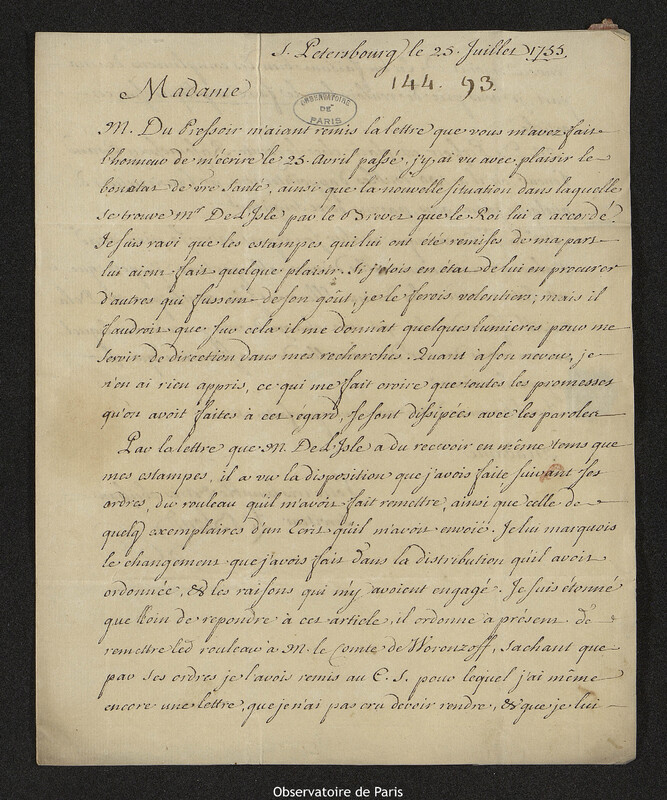 S. Petersbourg le 25. Juillet 1755
144. 93.
Madame
OBSERVATOIRE DE PARIS
M. Du Pressoir m'aiant remis la lettre que vous m'avez fait
l'honneur de m'écrire le 25. Avril passé, j'y ai vu avec plaisir le
bon état de vre santé, ainsi que la nouvelle situation dans laquelle
se trouve Mr. De L'Isle par le Brevet que le Roi lui a accordé.
Je suis ravi que les estampes qui lui ont été remises de ma part
lui aient fait quelque plaisir. Si j'étois en état de lui en procurer
d'autres qui fussent de son goût, je le ferois volontiers; mais il
faudroit que sur cela il me donnât quelques lumieres pour me
servir de direction dans mes recherches. Quant à son neveu, je
n'en ai rien appris, ce qui me fait croire que toutes les promesses
qu'on avoit faites à cet égard, se sont dissipées avec les paroles.
Par la lettre que M. De L'Isle a du recevoir en même tems que
mes estampes, il a vu la disposition que j'avois faite suivant ses
ordres, du rouleau qu'il m'avoit fait remettre, ainsi que celle de
quelq exemplaires d'un Ecrit qu'il m'avoit envoié. Je lui marquois
le changement que j'avois fait dans la distribution qu'il avoit
ordonnée, & les raisons qui m'y avoient engagé. Je suis étonné
que loin de repondre à cet article, il ordonne à présent de
remettre led rouleau à M. le Comte de Woronzoff, sachant que
par ses ordres je l'avois remis au C. S. pour lequel j'ai même
encore une lettre, que je n'ai pas cru devoir rendre, & que je lui
Observatoire de Paris